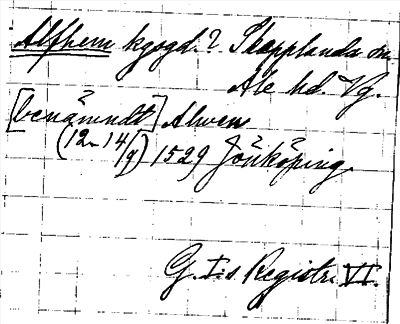 Alfhem kgsgd.? Skepplanda sn.
Ale hd. Vg.
[benämndt] Alwen
(12-14/9) 1529 Jönköping
G. I:s Registr. VI.